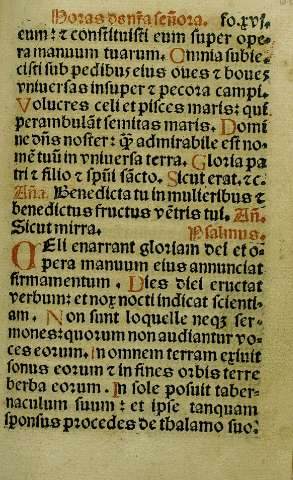 Horas de nr̃a señora. fo.xvj.
eum: ⁊ constituisti eum super ope
ra manuum tuarum. Omnia subie
cisti sub pedibus eius oues ⁊ boues
vniuersas insuper ⁊ pecora campi.
Volucres celi et pisces maris: qui
perambulāt semitas maris. Domi
ne dñs noster: q̃ admirabile est no
mē tuū in vniuersa terra. Gloria pa
tri ⁊ filio ⁊ spũi sācto. Sicut erat. ⁊c.
Aña. Benedicta tu in mulieribus ⁊
benedictus fructus vētris tui. Añ.
Sicut mirra. Psalmus.
Celi enarrant gloriam dei et o
pera manuum eius annunciat
firmamentum. Dies diei eructat
verbum: et nox nocti indicat scienti
am. Non sunt loquelle neqz ser
mones: quorum non audiantur vo
ces eorum. In omnem terram exiuit
sonus eorum ⁊ in fines orbis terre
berba eorum. In sole posuit taber
naculum suum: et ipse tanquam
sponsus procedēs de thalamo suo: